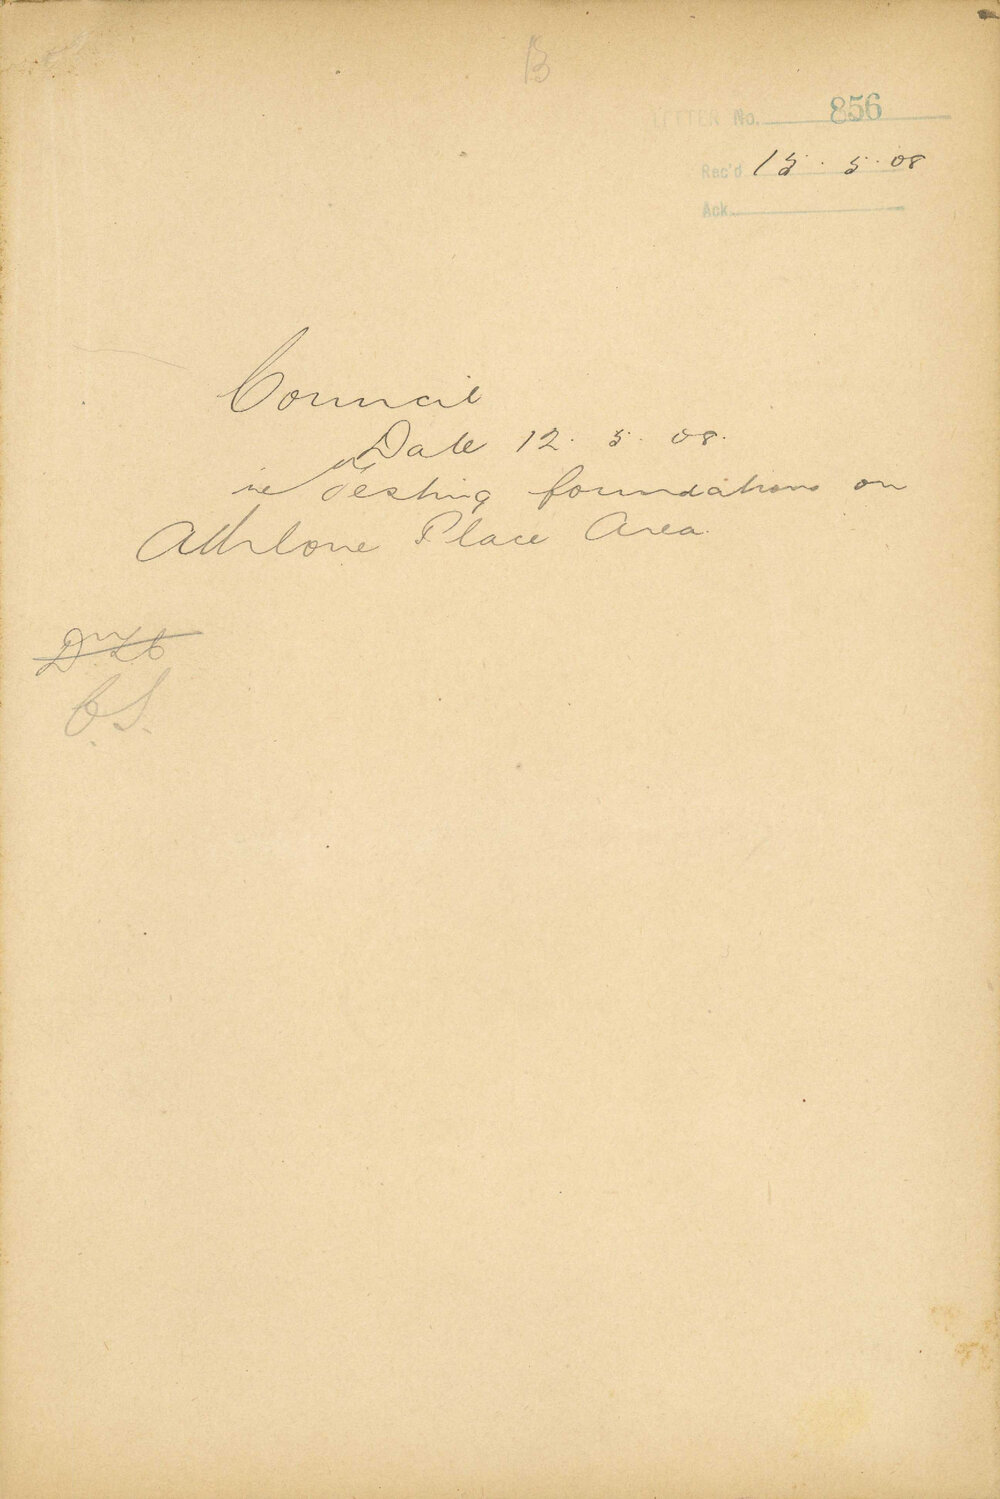 B
LETTER No. 856
Rec'd 15. 5. 08
Ack.
Council
Date 12. 5. 08.
re Testing foundations on
Athlone Place Area.
C.S.